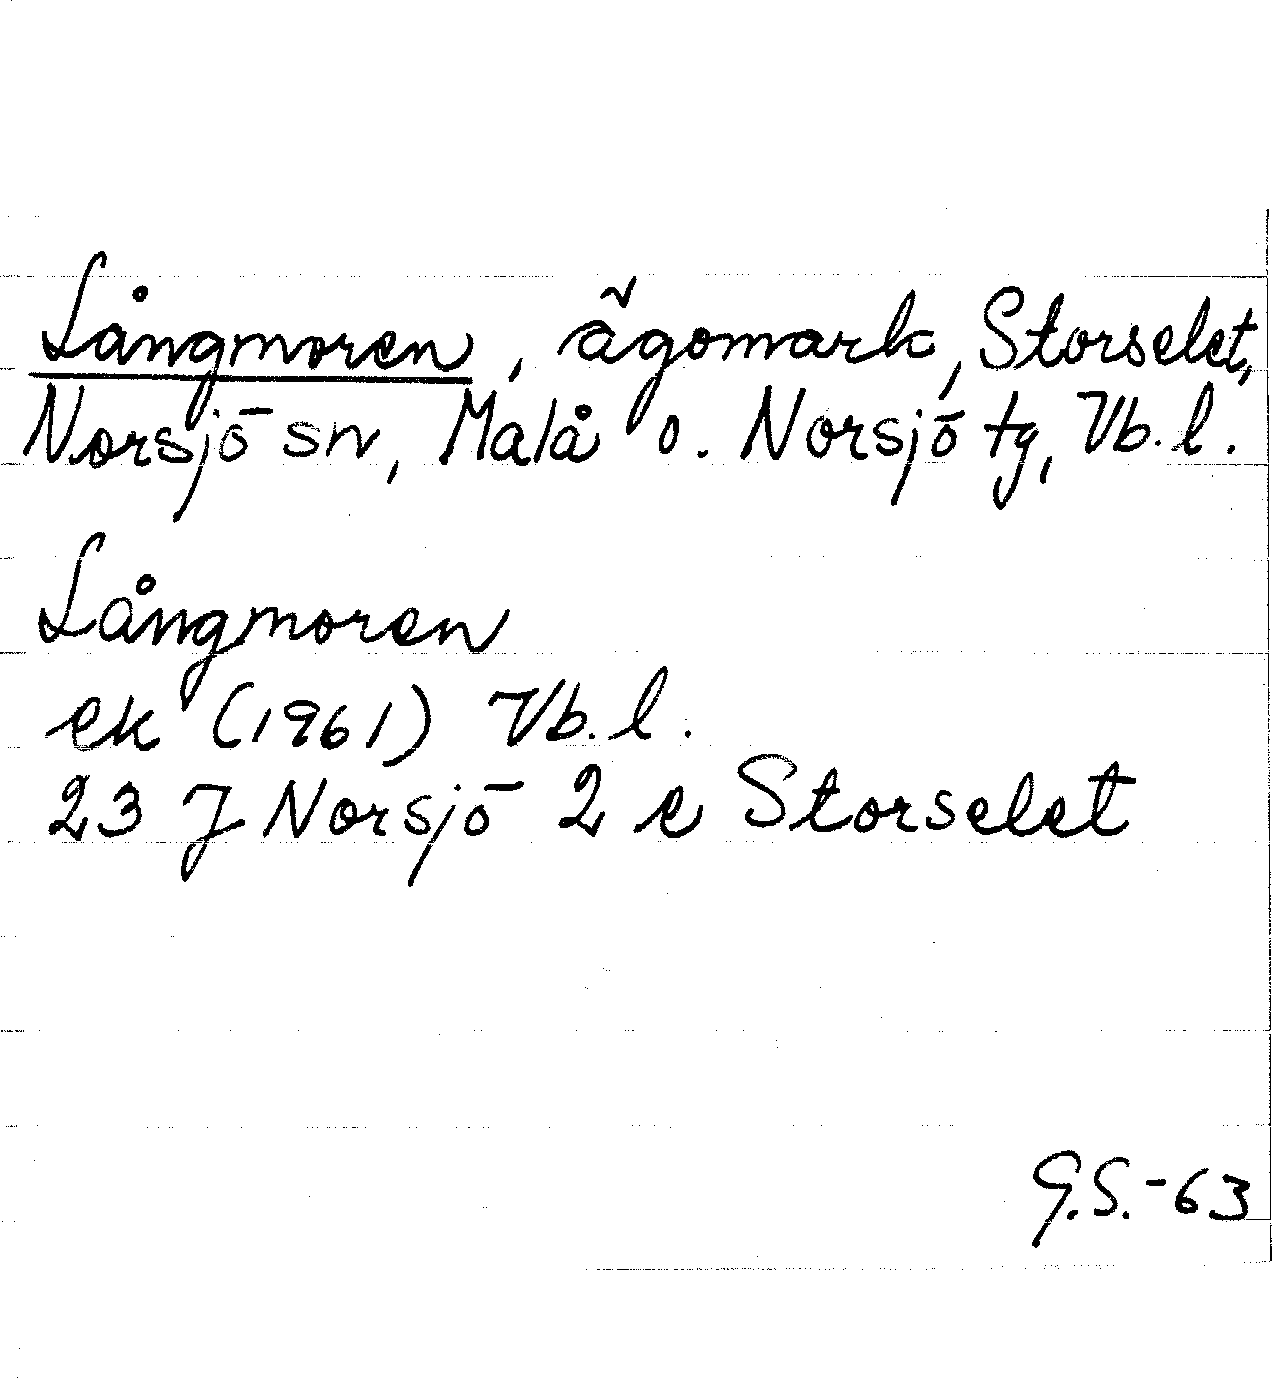 Långmoren, ägomark, Storselet,
Norsjö sn, Malå o. Norsjö tg, Vb. l.
Långmoren
ek (1961) Vb. l.
23 J Norsjö 2 e Storselet
G.S.-63